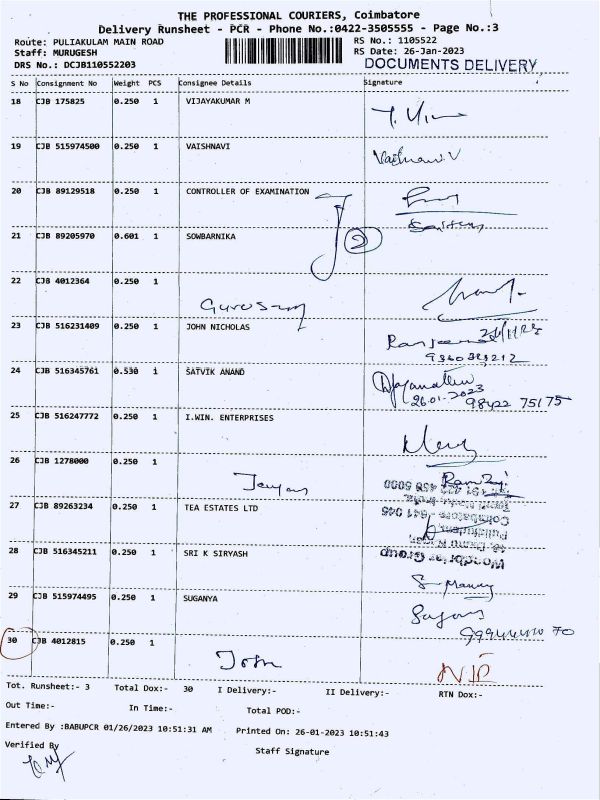 THE PROFESSIONAL COURIERS, Coimbatore
Delivery Runsheet - PCR - Phone No.:0422-3505555 - Page No.:3
Route: PULIAKULAM MAIN ROAD RS No.: 1105522
Staff: MURUGESH RS Date: 26-Jan-2023
DRS No.: DCJB110552203 DOCUMENTS DELIVERY
S No Consignment No Weight PCS Consignee Details Signature
18 CJB 175825 0.250 1 VIJAYAKUMAR M
19 CJB 515974500 0.250 1 VAISHNAVI
Vaishnavi V
20 CJB 89129518 0.250 1 CONTROLLER OF EXAMINATION
21 CJB 89205970 0.601 1 SOWBARNIKA
2
22 CJB 4012364 0.250 1
Gurusamy
23 CJB 516231409 0.250 1 JOHN NICHOLAS
9360323212
24 CJB 516345761 0.530 1 SATVIK ANAND
26.01.2023
98422 75175
25 CJB 516247772 0.250 1 I.WIN. ENTERPRISES
26 CJB 1278000 0.250 1
27 CJB 89263234 0.250 1 TEA ESTATES LTD
Coimbatore - 641 045
28 CJB 516345211 0.250 1 SRI K SIRYASH
29 CJB 515974495 0.250 1 SUGANYA
30 CJB 4012815 0.250 1
John
Tot. Runsheet:- 3 Total Dox:- 30 I Delivery:- II Delivery:- RTN Dox:-
Out Time:- In Time:- Total POD:-
Entered By :BABUPCR 01/26/2023 10:51:31 AM Printed On: 26-01-2023 10:51:43
Verified By Staff Signature